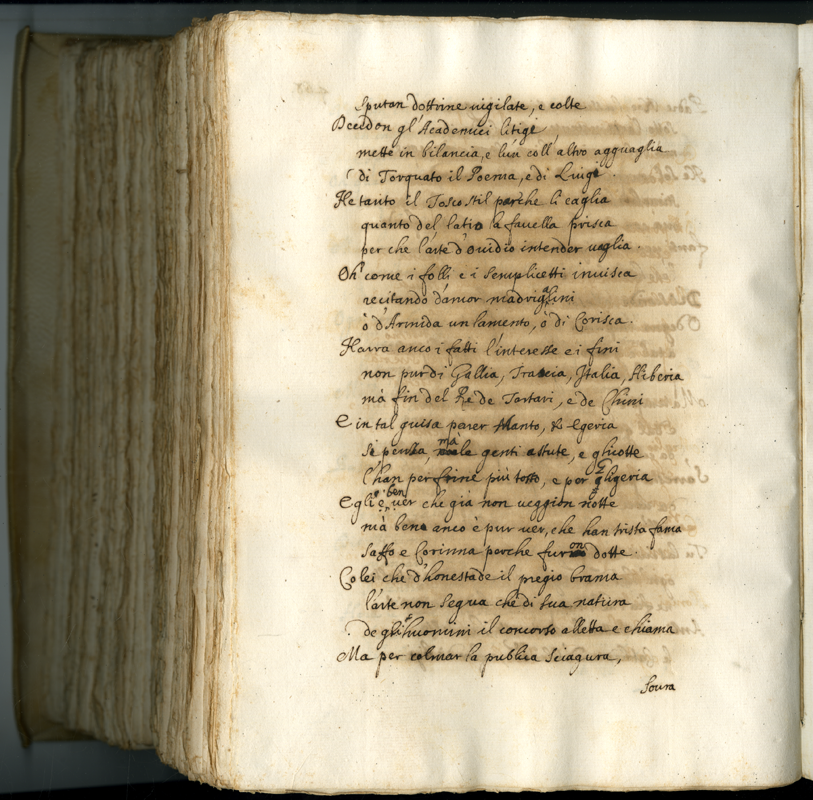 Sputan dottrine vigilate, e colte
Decidon gl'Academici litigi,
mette in bilancia, e l'un coll'altro agguaglia
di Torquato il Poema, e di Luigi.
Ne tanto il Tosco stil parche li caglia
quanto del latio la fauella prisca
per che l'arte d'Ouidio intender uaglia.
Oh come i folli e i semplicetti inuisca
recitando d'amor madrigalini
ò d'Armida un lamento, ò di Corisca.
Harrà anco i fatti l'interesse e i fini
non pur di Gallia, Traccia, Italia, Hiberia
mà fin del Re de Tartari, e de Chini
E in tal guisa parer Manto, & Egeria
si pensa, ma le genti astute, e ghiotte
l'han per frine più tosto, e per gligeria
Egli è ben uer che già non ueggion notte
mà bene anco è pur uer, che han trista fama
Saffo e Corinna perche furon dotte.
Colei che d'honestade il pregio brama
l'arte non segua che di sua natura
de gli huomini il concorso alletta e chiama
Ma per colmar la publica sciagura,
Soura